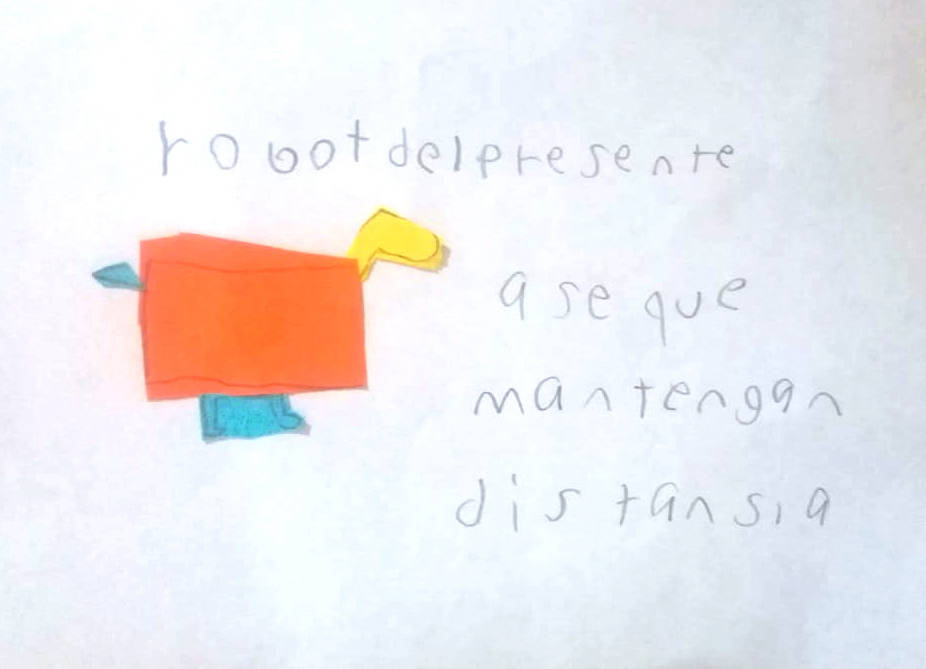 robotdelpresente
ase que
mantengan
distansia